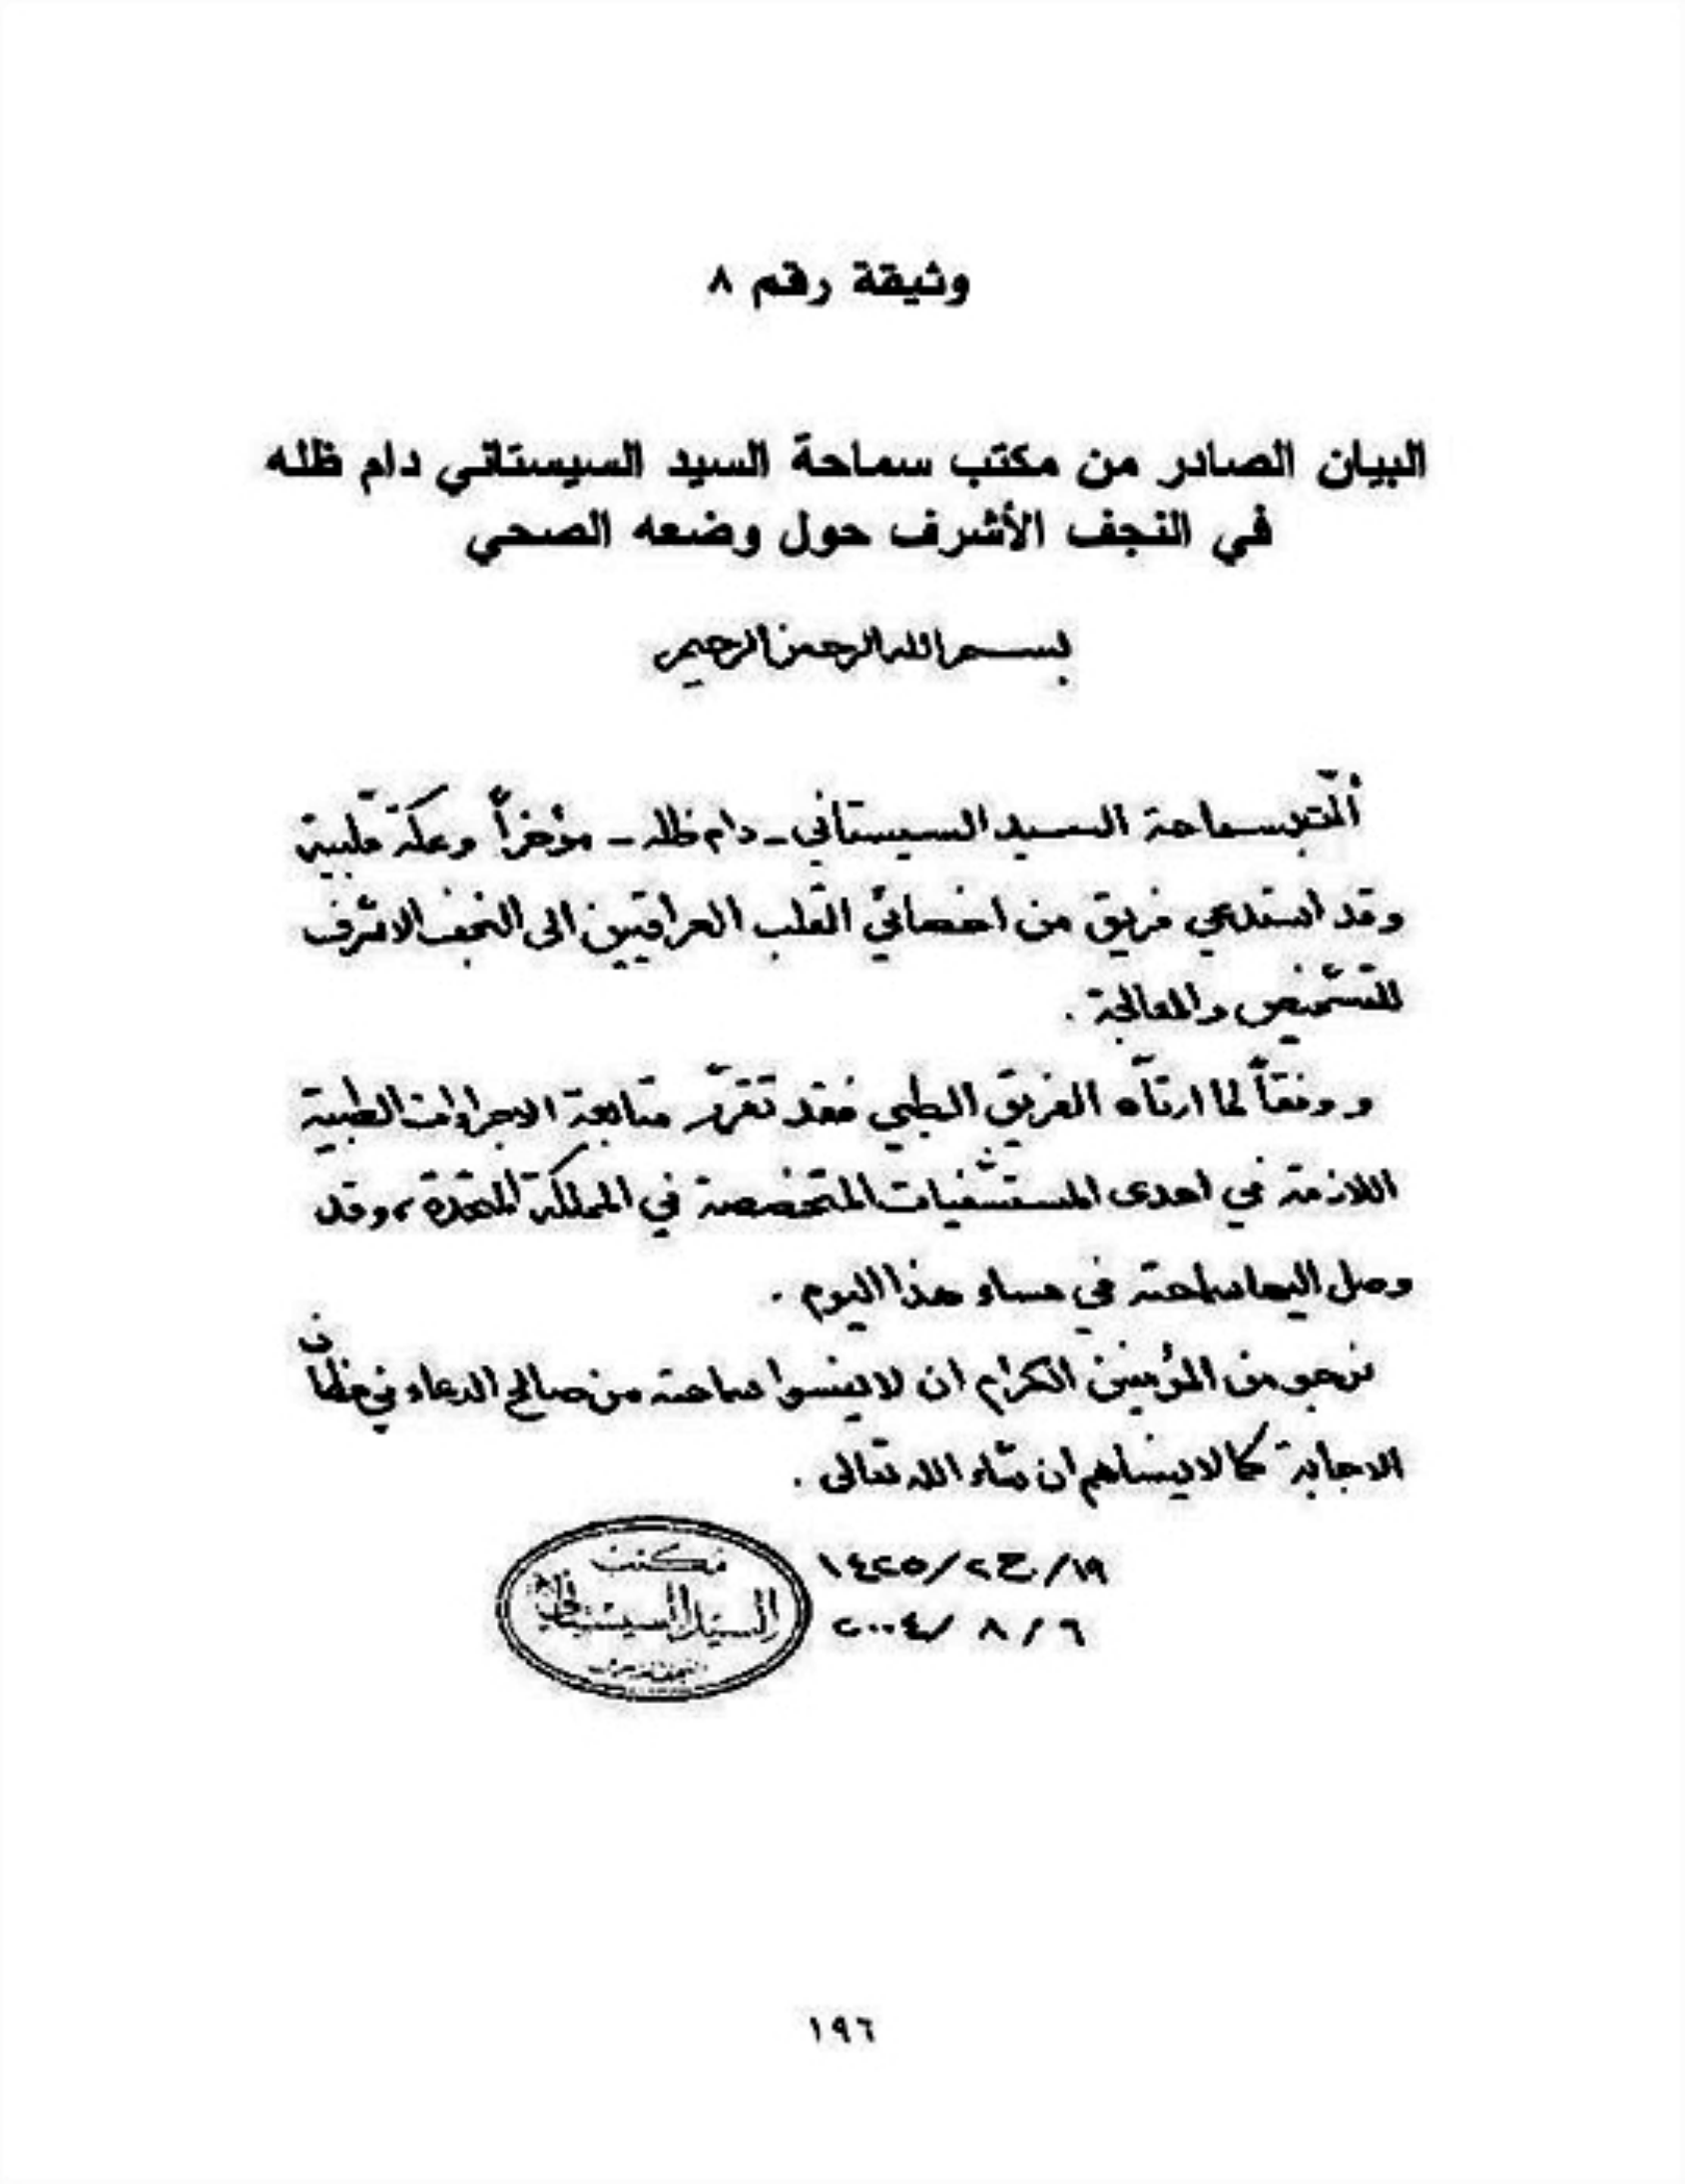 وثيقة رقم ٨
البيان الصادر من مكتب سماحة السيد السيستاني دام ظله
في النجف الأشرف حول وضعه الصحي
بسم الله الرحمن الرحيم
ألمّت بسماحة السيد السيستاني ـ دام ظله ـ مؤخراً وعكة قلبية
وقد استدعي فريق من اخصائيّ القلب العراقيين الى النجف الاشرف
للتشخيص والمعالجة .
ووفقاً لما ارتآه الفريق الطبي فقد تقرّر متابعة الاجراءات الطبية
اللازمة في احدى المستشفيات المتخصصة في المملكة المتحدة ، وقد
وصل اليها سماحته في مساء هذا اليوم .
نرجو من المؤمنين الكرام ان لا ينسوا سماحته من صالح الدعاء في مظانّ
الاجابة كما لا ينساهم ان شاء الله تعالى .
١٩/ج٢/١٤٢٥
٦/٨/٢٠٠٤
مكتب
السيد السيستاني
١٩٦